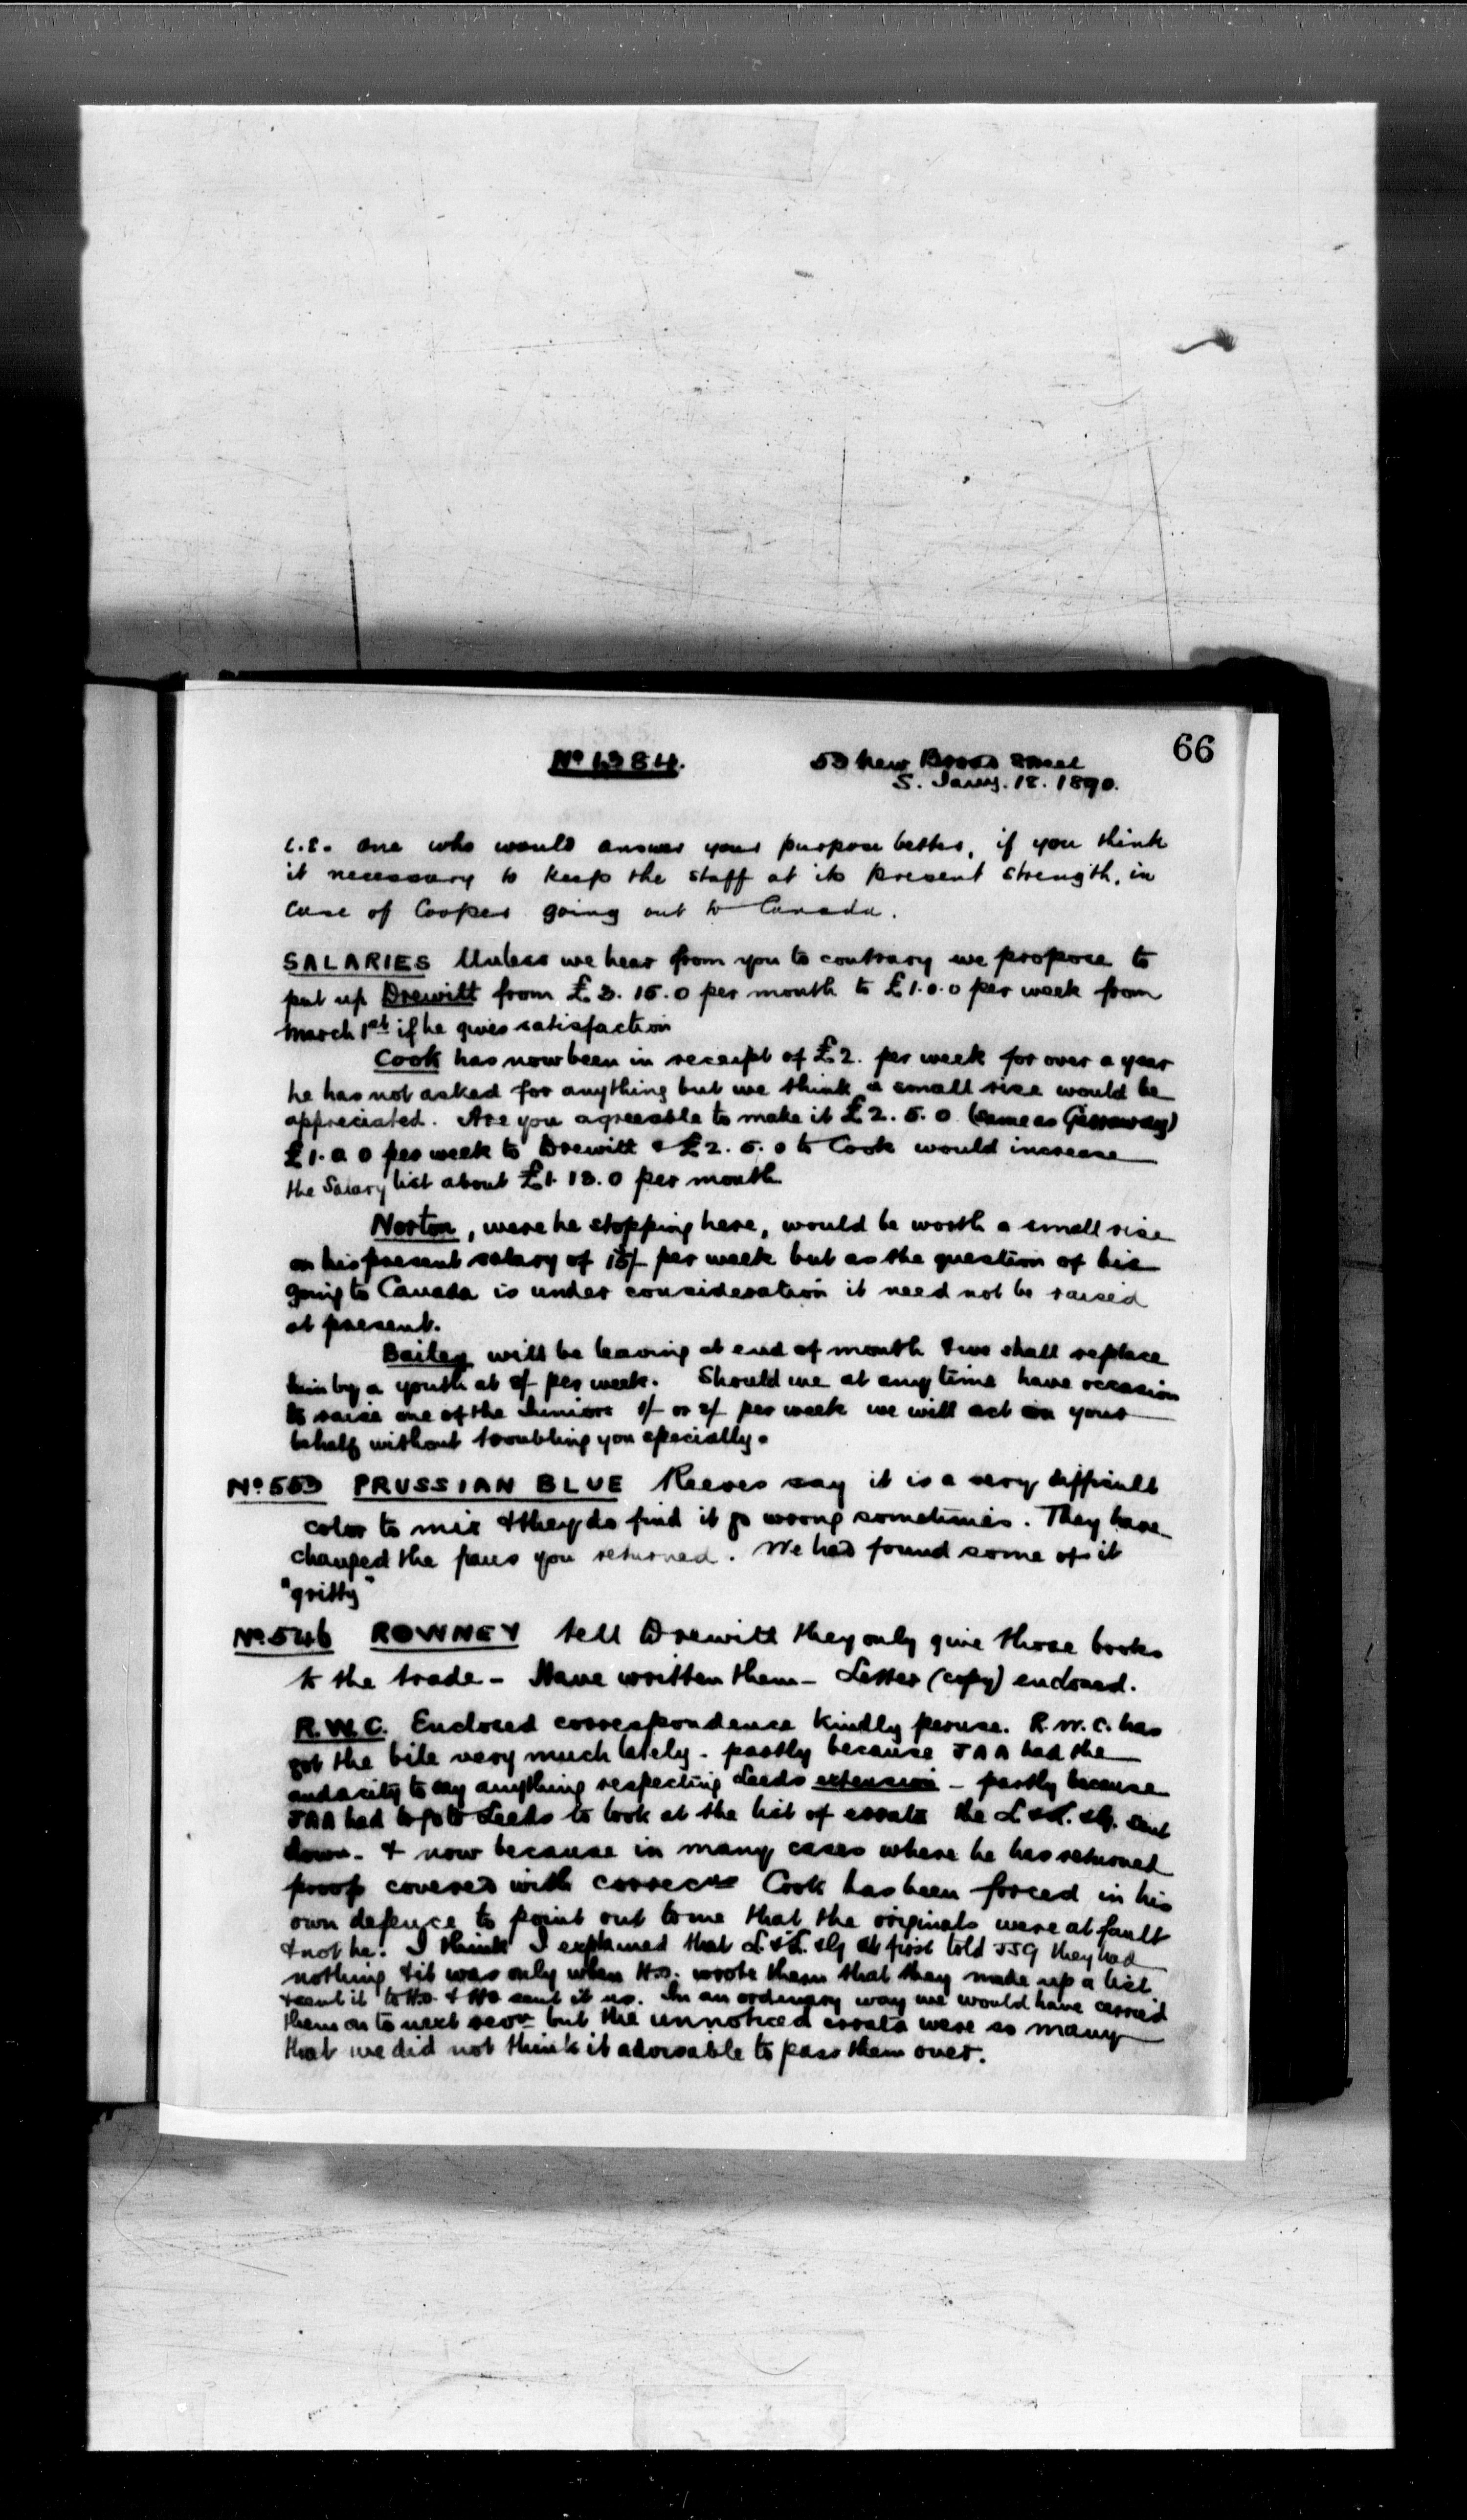 66
No 1384.
53 New Broad Street
S. Jany. 18. 1890.
i.e. one who would answer your purpose better, if you think
it necessary to keep the staff at its present strength, in
case of Cooper going out to Canada.
SALARIES Unless we hear from you to contrary we propose to
put up Drewitt from £3.15.0 per month to £1.0.0 per week from
March 1st if he gives satisfaction
Cook has now been in receipt of £2. per week for over a year
he has not asked for anything but we think a small rise would be
appreciated. Are you agreeable to make it £2.5.0 (same as Gissaway)
£1.0.0 per week to Drewitt & £2.5.0 to Cook would increase
the Salary list about £1.13.0 per month
Norton, were he stopping here, would be worth a small rise
on his present salary of 15/- per week but as the question of his
going to Canada is under consideration it need not be raised
at present.
Bailey will be leaving at end of month & we shall replace
him by a youth at per week. Should we at any time have occasion
to raise one of the Juniors 1/- or 2/- per week we will act on your
behalf without troubling you specially.
No 553 PRUSSIAN BLUE Reeves say it is a very difficult
color to mix & they do find it go wrong sometimes. They have
changed the pans you returned. We had found some of it
"gritty"
No. 546 ROWNEY tell Drewitt they only give those books
to the trade - Have written them - Letter (copy) enclosed.
R.W.C. Enclosed correspondence kindly peruse. R.W.C. has
got the bile very much lately - partly because JAA had the
audacity to say anything respecting Leeds extension - partly because
JAA had to go to Leeds to look at the list of errata the L & L. & G. sent
down - & now because in many cases where he has returned
proofs covered with correcns Cook has been forced in his
own defence to point out to me that the originals were at fault
& not he. I think I explained that L. & L. & G at first told JJG they had
nothing & it was only when H.O. wrote them that they make up a list
& sent it to H.O. & HO sent it us. In an ordinary way we would have carried
them on to next revn but the unnoticed errata were so many
that we did not think it advisable to pass them over.